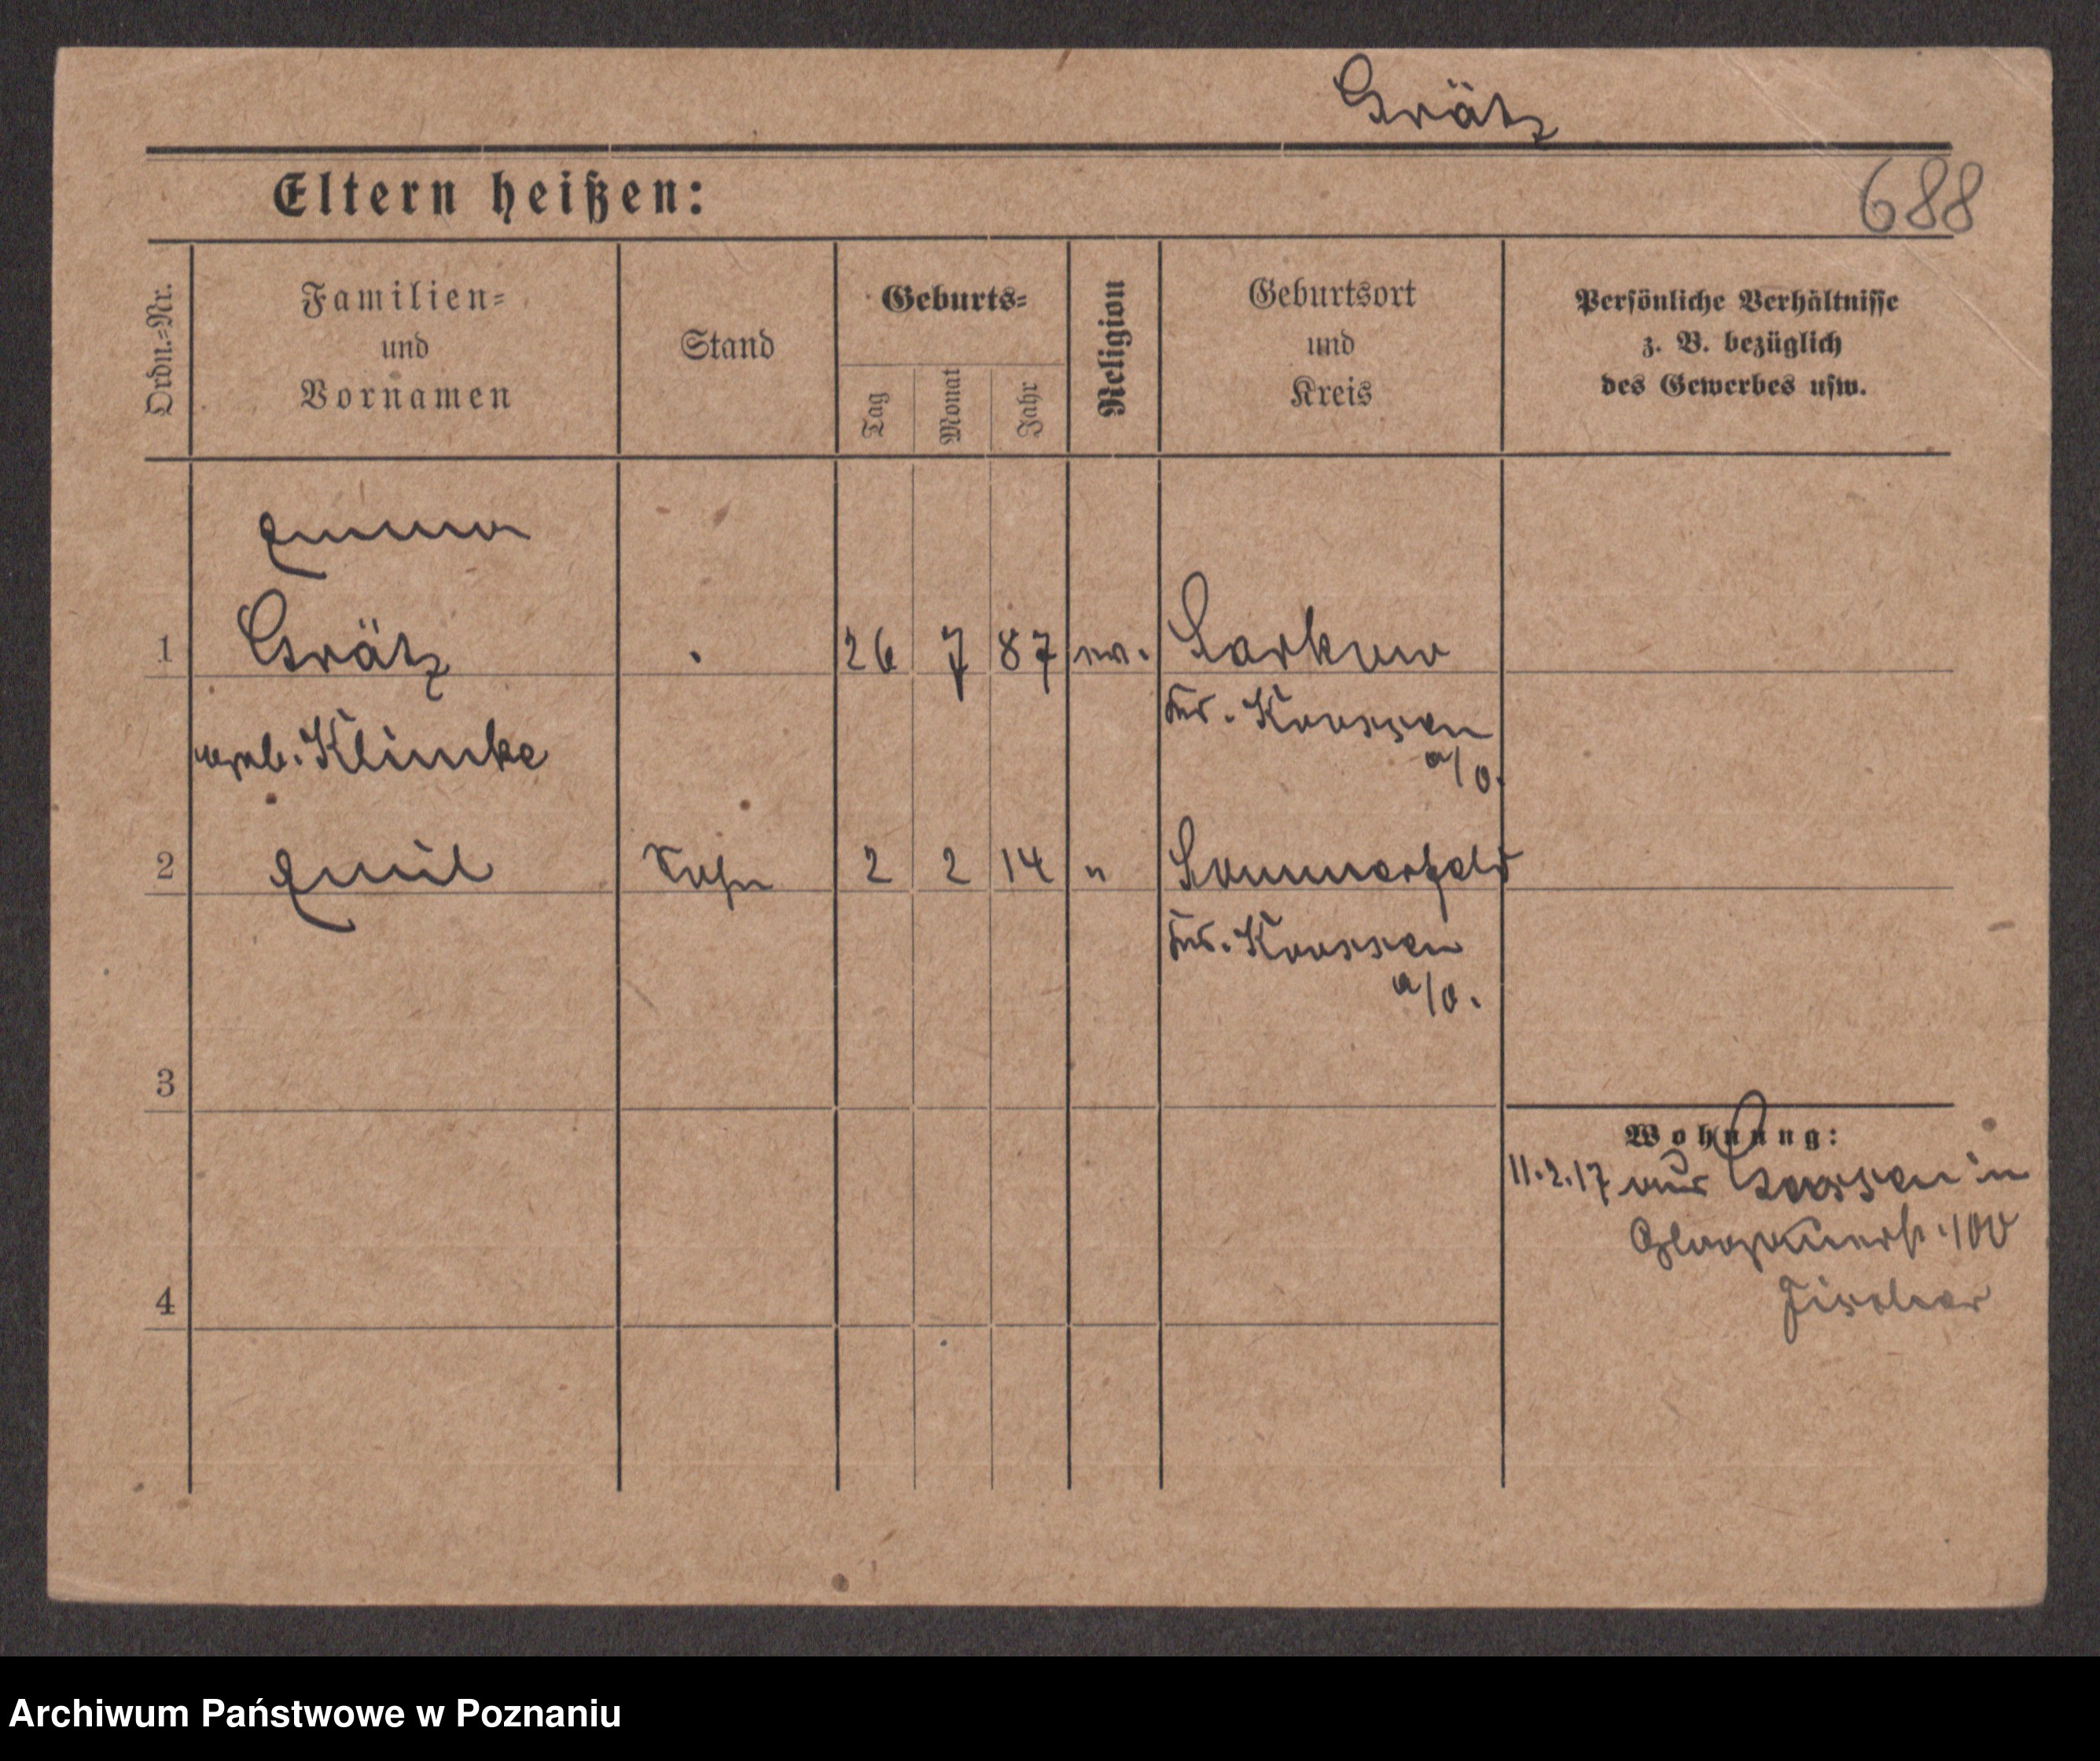 Grätz
Eltern heißen:
688
Ordn.-Nr.
Familien-
und
Vornamen
Stand
Geburts-
Tag
Monat
Jahr
Religion
Geburtsort
und
Kreis
Persönliche Verhältnisse
z. B. bezüglich
des Gewerbes usw.
Emma
1 Grätz 26 7 87 ev. Sarkow
Kr. Krossen
a/O.
geb. Klimke
2 Emil Sohn 2 2 14 " Sommerfeld
Kr. Krossen
a/O.
3
Wohnung:
11.2.17 aus in
Glogauerstr. 100
Fischer
4
Archiwum Państwowe w Poznaniu